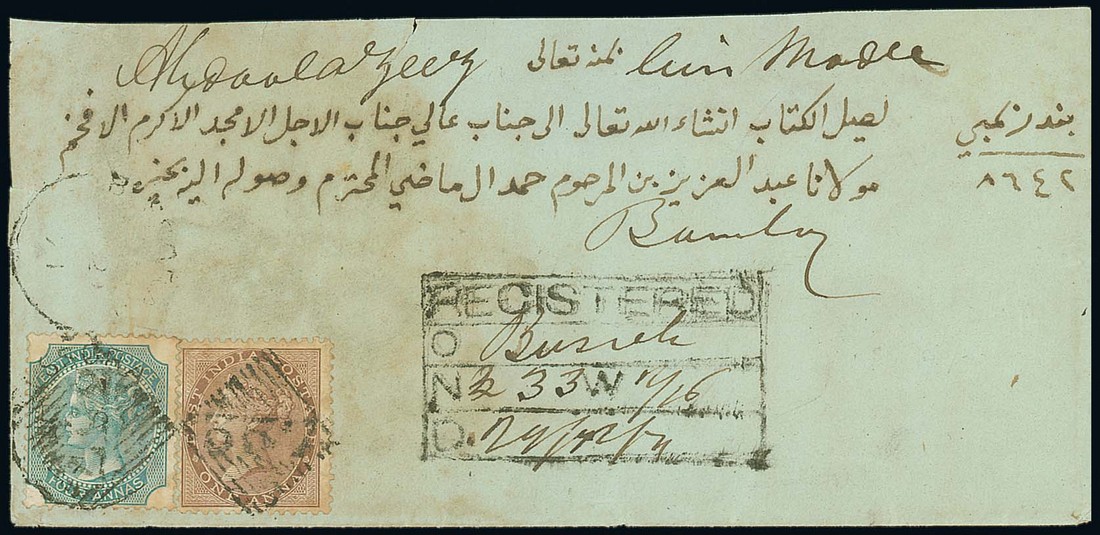 Abdoolazeez بمنه تعالى bin Madee
بندر نمبي
٨٦٤٢
لصيل الكتاب انشاء الله تعالى الى جناب عالي جناب الاجل الامجد الاكرم الافخم
مولانا عبد العزيز بن المرحوم حمد ال ماضي المحترم وصوله اليه بخير
Bombay
REGISTERED
O Busreh
N 33 W
D. 29/12/
EAST INDIA POSTAGE
FOUR ANNAS
EAST INDIA POSTAGE
ONE ANNA